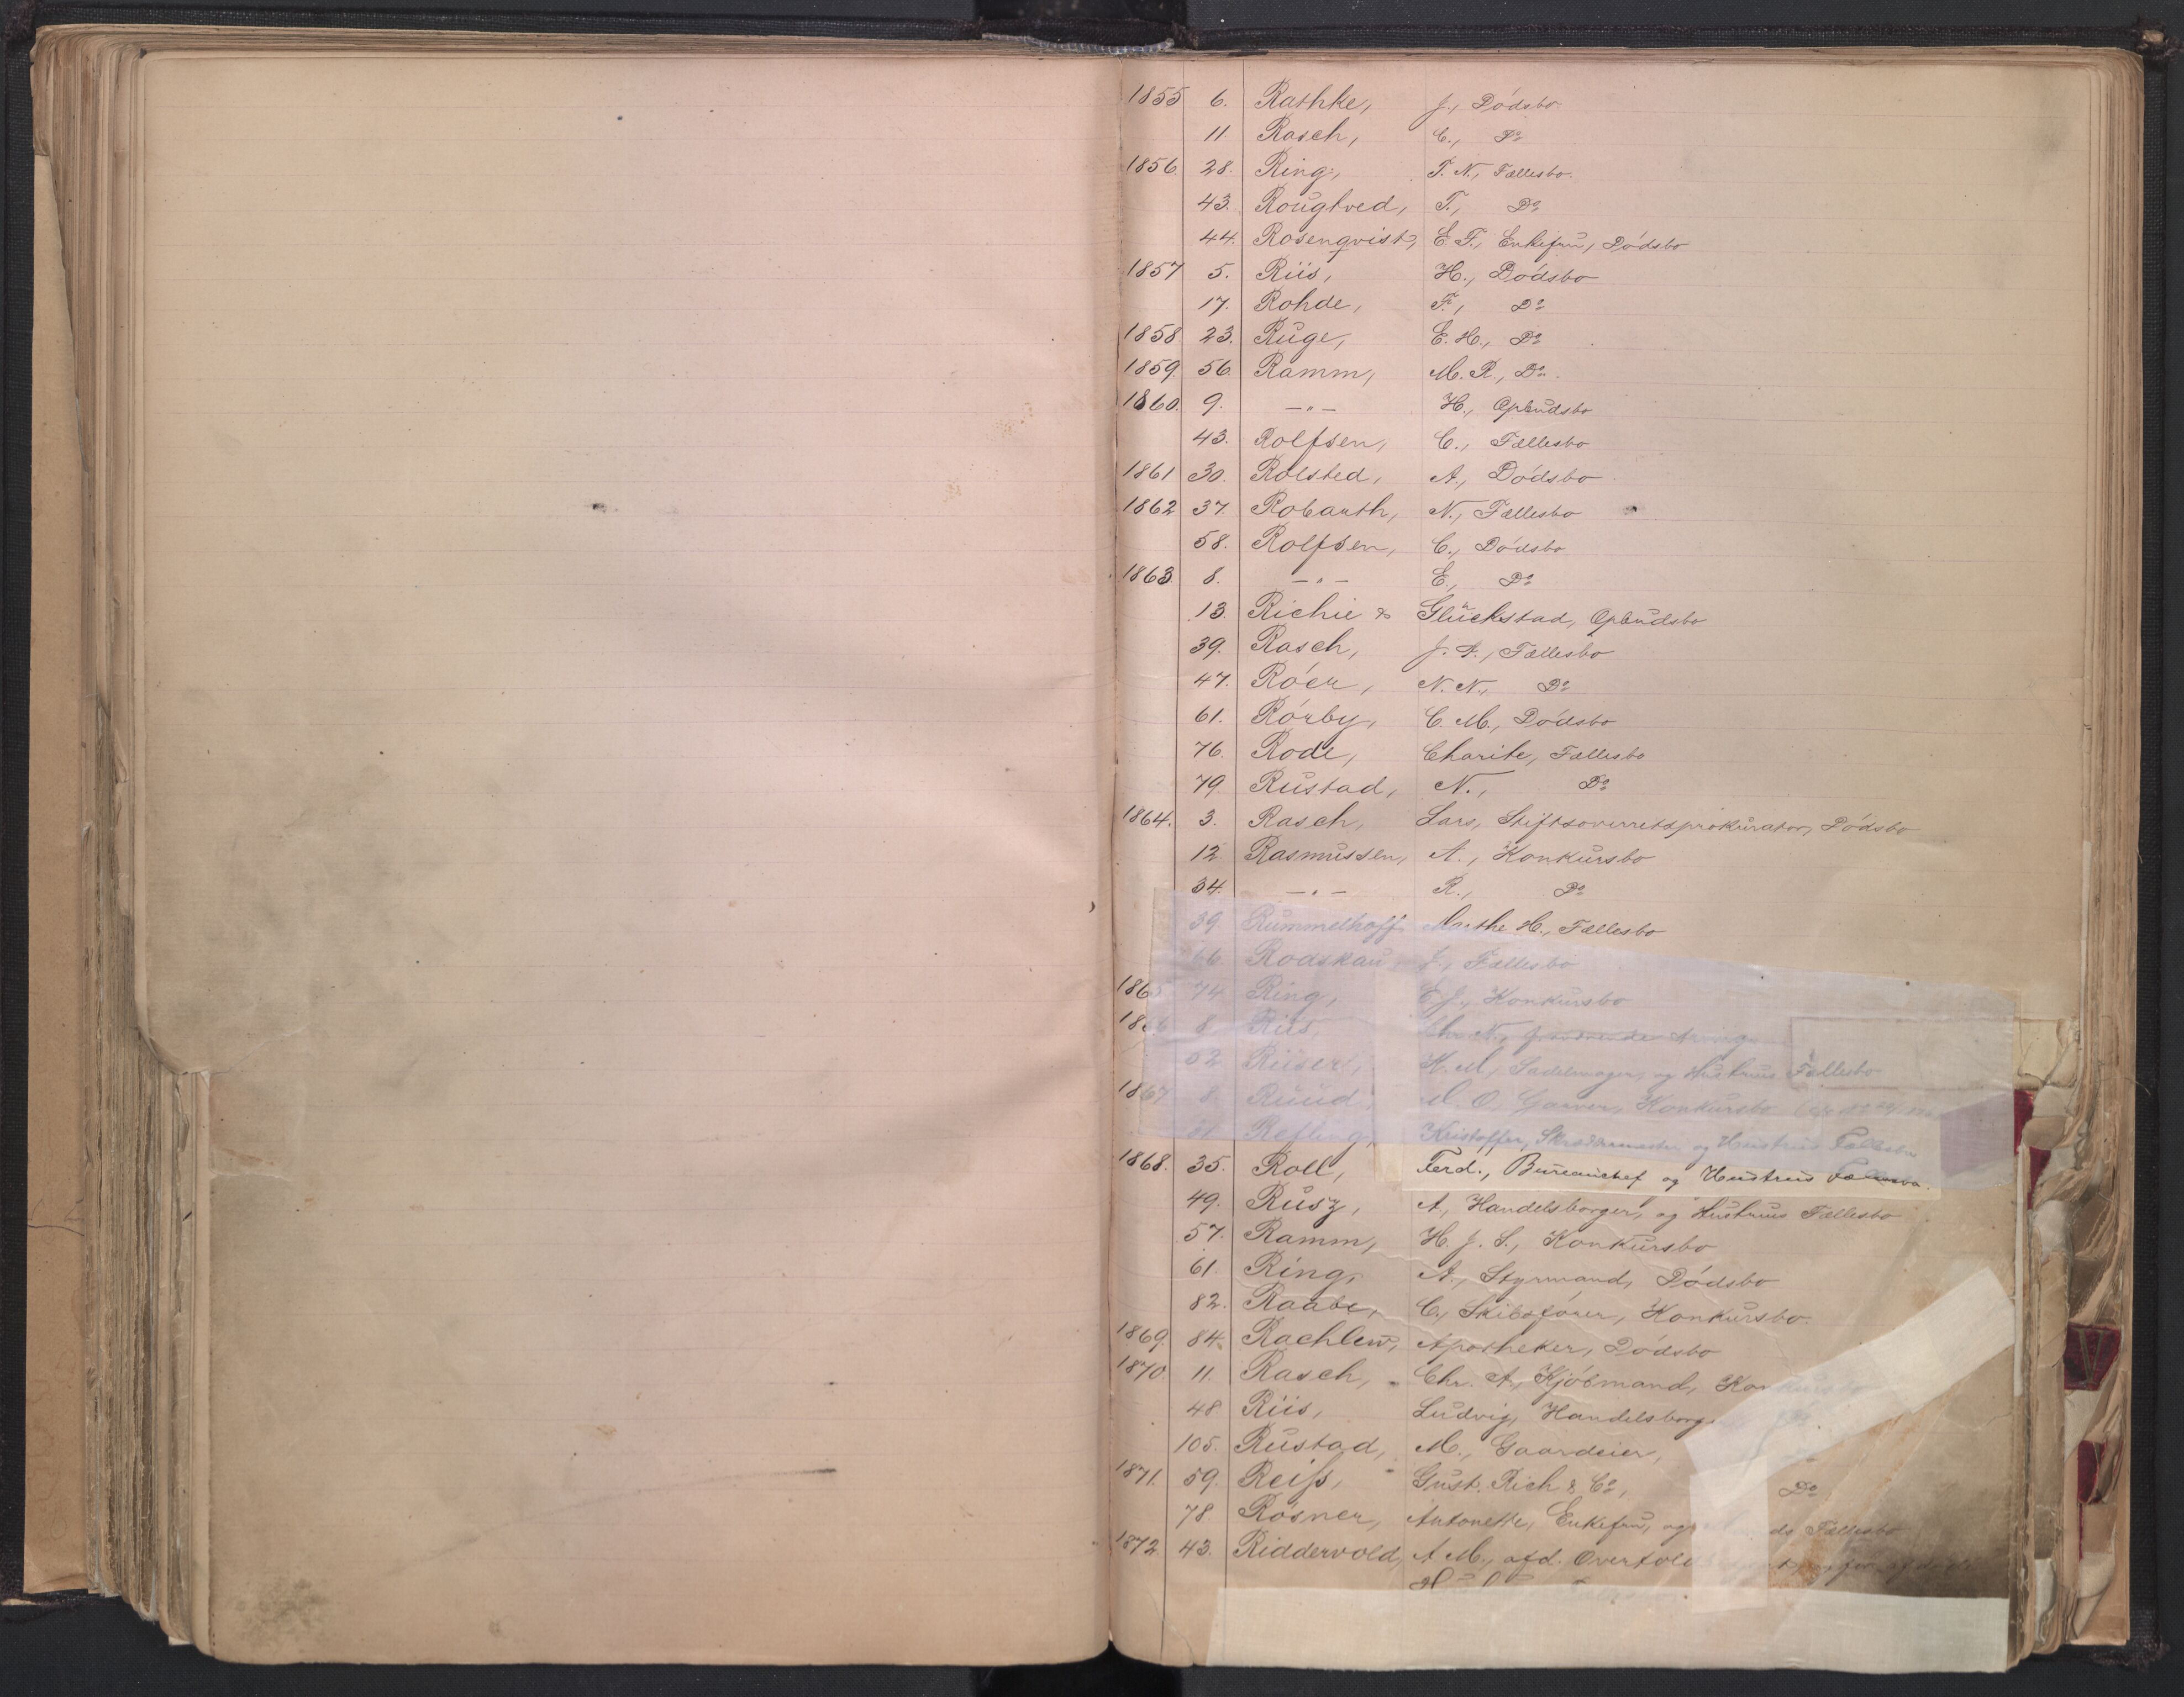 1855 6. Rashke, J., Dödsbo
11 Rasch, C., Do
1856 28. Ring, T. N., Fællesbo.
43. Rougtved, T., Do
44. Rosenqvist, E. F., Enkefru, Dödsbo
1857 5. Riis, H., Dödsbo
17. Rohde, F., Do
1858 23. Ruge, E. H., Do
1859. 56. Ramm, M. R., Do.
1860. 9. —"— H., Opbudsbo
43. Rolfsen, C., Fællesbo
1861 30. Rolsted, A., Dödsbo
1862 37. Robarth, N., Fællesbo
58. Rolfsen, C., Dödsbo
1863 8. —"— E., Do
13. Richie & Glückstad, Opbudsbo
39. Rasch, J. A., Fællesbo
47. Röer, N. N., Do
61. Rörby, C. M., Dödsbo
76. Rode, Charite, Fællesbo
79. Rustad, N., Do
1864. 3. Rasch, Lars, Stiftsoverretsprokurator, Dödsbo
12 Rasmussen, A., Konkursbo
34. —"— R., Do
39. Rummelhoff, Marthe H., Fællesbo
66. Rodskau J., Fællesbo
1865 74 Ring, E. J., Konkursbo
1866 8 Riis, Chr. N.,
52 Riiser, H. M., Sadelmager, og Hustrus Fællesbo
1867 8 Ruud, O., Garver, Konkursbo
31 Refling, Kristoffer, Skræddermester og Hustrus Fællesbo
1868. 35. Roll, Ferd., Bureauchef og Hustrus Fællesbo.
49. Rusz, A., Handelsborger, og Hustrus Fællesbo
57. Ramm, H. J. S., Konkursbo
61. Ring, A., Styrmand, Dödsbo
82. Raabe, C., Skibsförer, Konkursbo.
1869. 84. Rachlew, Apotheker, Dödsbo
1870. 11. Rasch, Chr. A., Kjöbmand, Konkursbo
48 Riis, Ludvig, Handelsborger Do.
105. Rustad, M., Gaardeier, "
1871. 59. Reiss, Gust. Rich & Co, Do
78. Rösner, Antonette, Enkefru, og Fællesbo
1872. 43. Riddervold, A. M., afd. Overtold